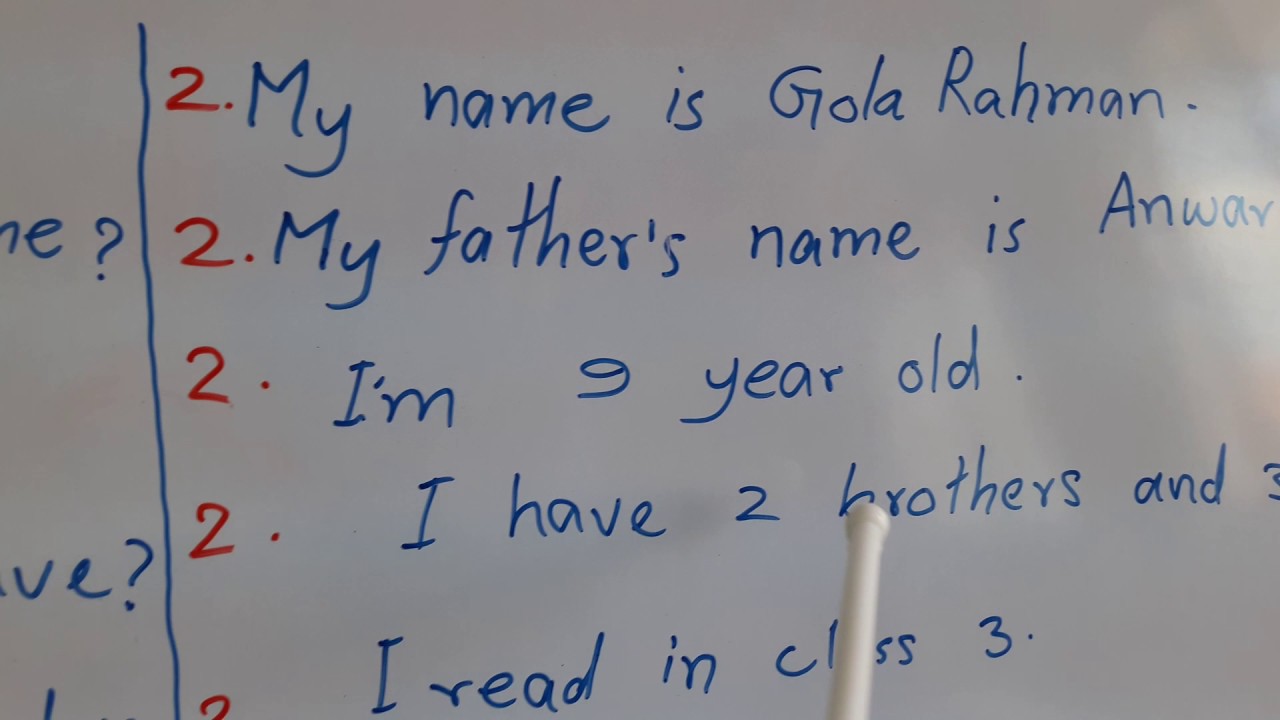 2. My name is Gola Rahman.
ne? 2. My father's name is Anwar
2. I'm 9 year old.
2. I have 2 brothers and 3
ve?
I read in class 3.
2